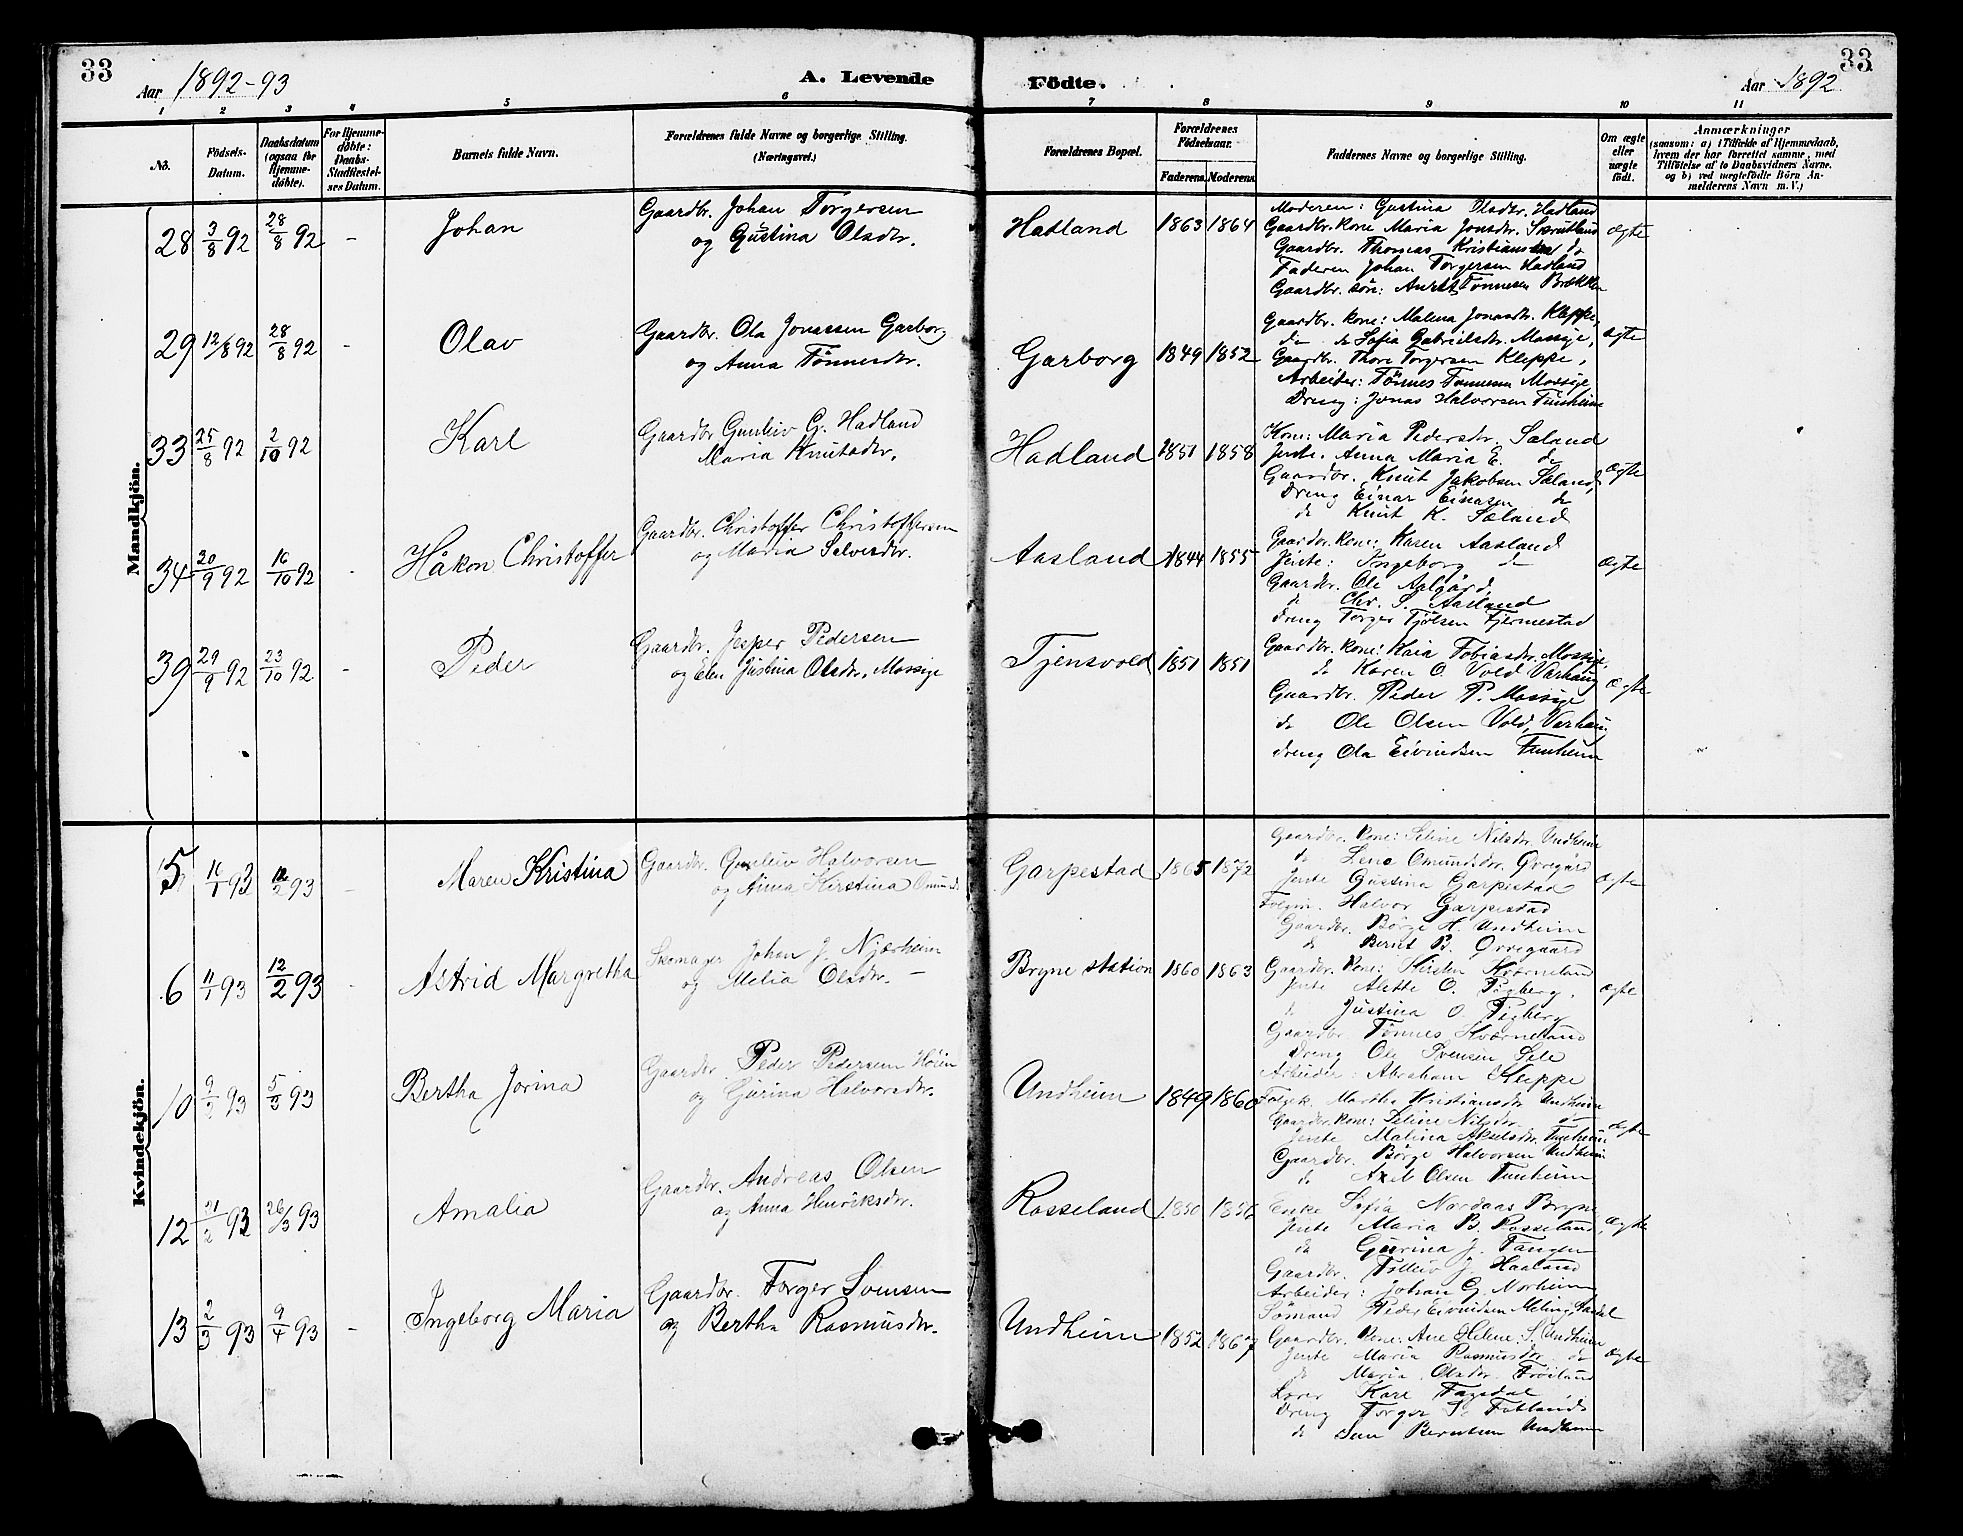 33
Aar 1892-93
A. Levende
Födte.
Aar 1892
33
1 2 3 4 5 6 7 8 9 10 11
No.
Födsels-Datum.
Daabsdatum (ogsaa for Hjemme-döbte).
For Hjemme-döbte: Daabs-Stadfæstel-ses Datum.
Barnets fulde Navn.
Forældrenes fulde Navne og borgerlige Stilling.
(Næringsvei.)
Forældrenes Bopæl.
Forældrenes Födselsaar.
Faderens. Moderens.
Faddernes Navne og borgerlige Stilling.
Om ægte eller uægte födt.
Anmærkninger
(saasom: a) i Tilfælde af Hjemmedaab,
hvem der har forrettet samme, med
Tilföielse af to Daabsvidners Navne.
og b) ved uægtefödte Börn An-
melderens Navn m. V.)
Mandkjön.
28 3/8 92 28/8 92 - Johan
Gaardbr. Johan Torgersen
og Gustina Olsdtr.
Hadland 1863 1864
Moderen: Gustina Olsdtr. Hadland
Gaardbr. kone Maria Jonsdtr. Skrutland
Gaardbr. Thomas Kristiansen do
Faderen Johan Torgersen Hadland
Gaardbr. søn: Tønnesen Brække
ægte
29 12/8 92 28/8 92 - Olav
Gaardbr. Ola Jonassen Garborg
og Anna Tönnesdtr.
Garborg 1849 1852
Gaardbr. kone: Malena Jonasdtr. Kleppe,
do do Sofia Gabrielsdtr. Mossige,
Gaardbr. Thore Torgersen Kleppe,
Arbeider: Tönnes Tönnesen Mossige
Dreng: Jonas Halvorsen Tunheim
ægte
33 25/8 92 2/10 92 Karl
Gaardbr Gunleiv G. Hadland
Maria Knutsdtr.
Hadland 1851 1858
Kone: Maria Pedersdtr. Sæland
Jente. Anna Maria E. do
Gaardbr. Knut Jakobsen Sæland,
Dreng Einar Einasen do
do Knut K. Sæland
ægte
34 20/9 92 16/10 92 - Håkon Christoffer
Gaardbr. Christoffer Christoffersen
og Maria Salvesdtr.
Aasland 1844 1855
Gaardbr. kone: Karen Aasland
Jente: Ingeborg do
Gaardbr. Ole Aalgård,
do Chr. S. Aasland
dreng Torger Tjölsen Fjermestad
ægte
39 29/9 92 23/10 92 - Peder
Gaardbr. Jesper Pedersen
og Elen Justina Olsdtr. Mossige
Tjensvold 1851 1851
Gaardbr. kone: Kaia Tobiasdtr. Mossige,
do Karen O. Vold Varhaug
Gaardbr. Peder P. Mossige
do Ole Olsen Vold, Varhau.
dreng Ola Eivindsen Tunheim
ægte
Kvindekjön.
5 16/1 93 12/2 93 - Maren Kristina
Gaardbr. Gunleiv Halvorsen
og Anna Kirstina Omunds
Garpestad 1865 1872
Gaardbr. kone: Seline Nilsdtr. Undheim
do Lena Omundsdtr. Qvegård
Jente Gustina Garpestad
Folgm. Halvor Garpestad
Gaardbr. Börge H. Undheim
do Bernt B. Qvegaard
ægte
6 11/1 93 12/2 93 - Astrid Margretha
Skomager Johan J. Njærheim
og Melia Olsdtr. -
Bryne station 1860 1863
Gaardbr. kone: Kirsten Kværneland
Jente Alette O. Tigberg,
do Justina O. Tigberg
Gaardbr. Tönnes Kværneland
dreng Ole Svensen Sele
Arbeider: Abraham Kleppe
ægte
10 9/2 93 5/3 93 Bertha Jorina
Gaardbr. Peder Pedersen Höien
og Gurina Halvorsdtr.
Undheim 1849 1860
Folgek. Martha Kristiansdtr Undheim
Gaardbr. kone: Seline Nilsdtr. do
Jente Malina Akselsdtr. Tunheim
Gaardbr. Börge Halvorsen Undheim
do Axel Olsen Tunheim
ægte
12 21/2 93 26/3 93 Amalia
Gaardbr. Andreas Olsen
og Anna Henriksdtr.
Rosseland 1850 1856
Enke Sofia Nordaas Bryne
Jente Maria B. Rosseland,
do Gurina J. Tangen
Gaardbr. Tolleiv J. Haaland
Arbeider: Johan G. Norheim
Sömand Peder Eivindsen Meling
ægte
13 2/3 93 9/4 93 - Ingeborg Maria
Gaardbr. Torger Svensen
og Bertha Rasmusdtr.
Undheim 1852 1867
Gaardbr. kone: Ane Helene S. Undheim
Jente Maria Rasmusdtr do
do Maria Olsdtr Fröiland
Lærer Karl Fagedal
Dreng Torger S. Fotland
do Sven Berntsen Undheim
ægte